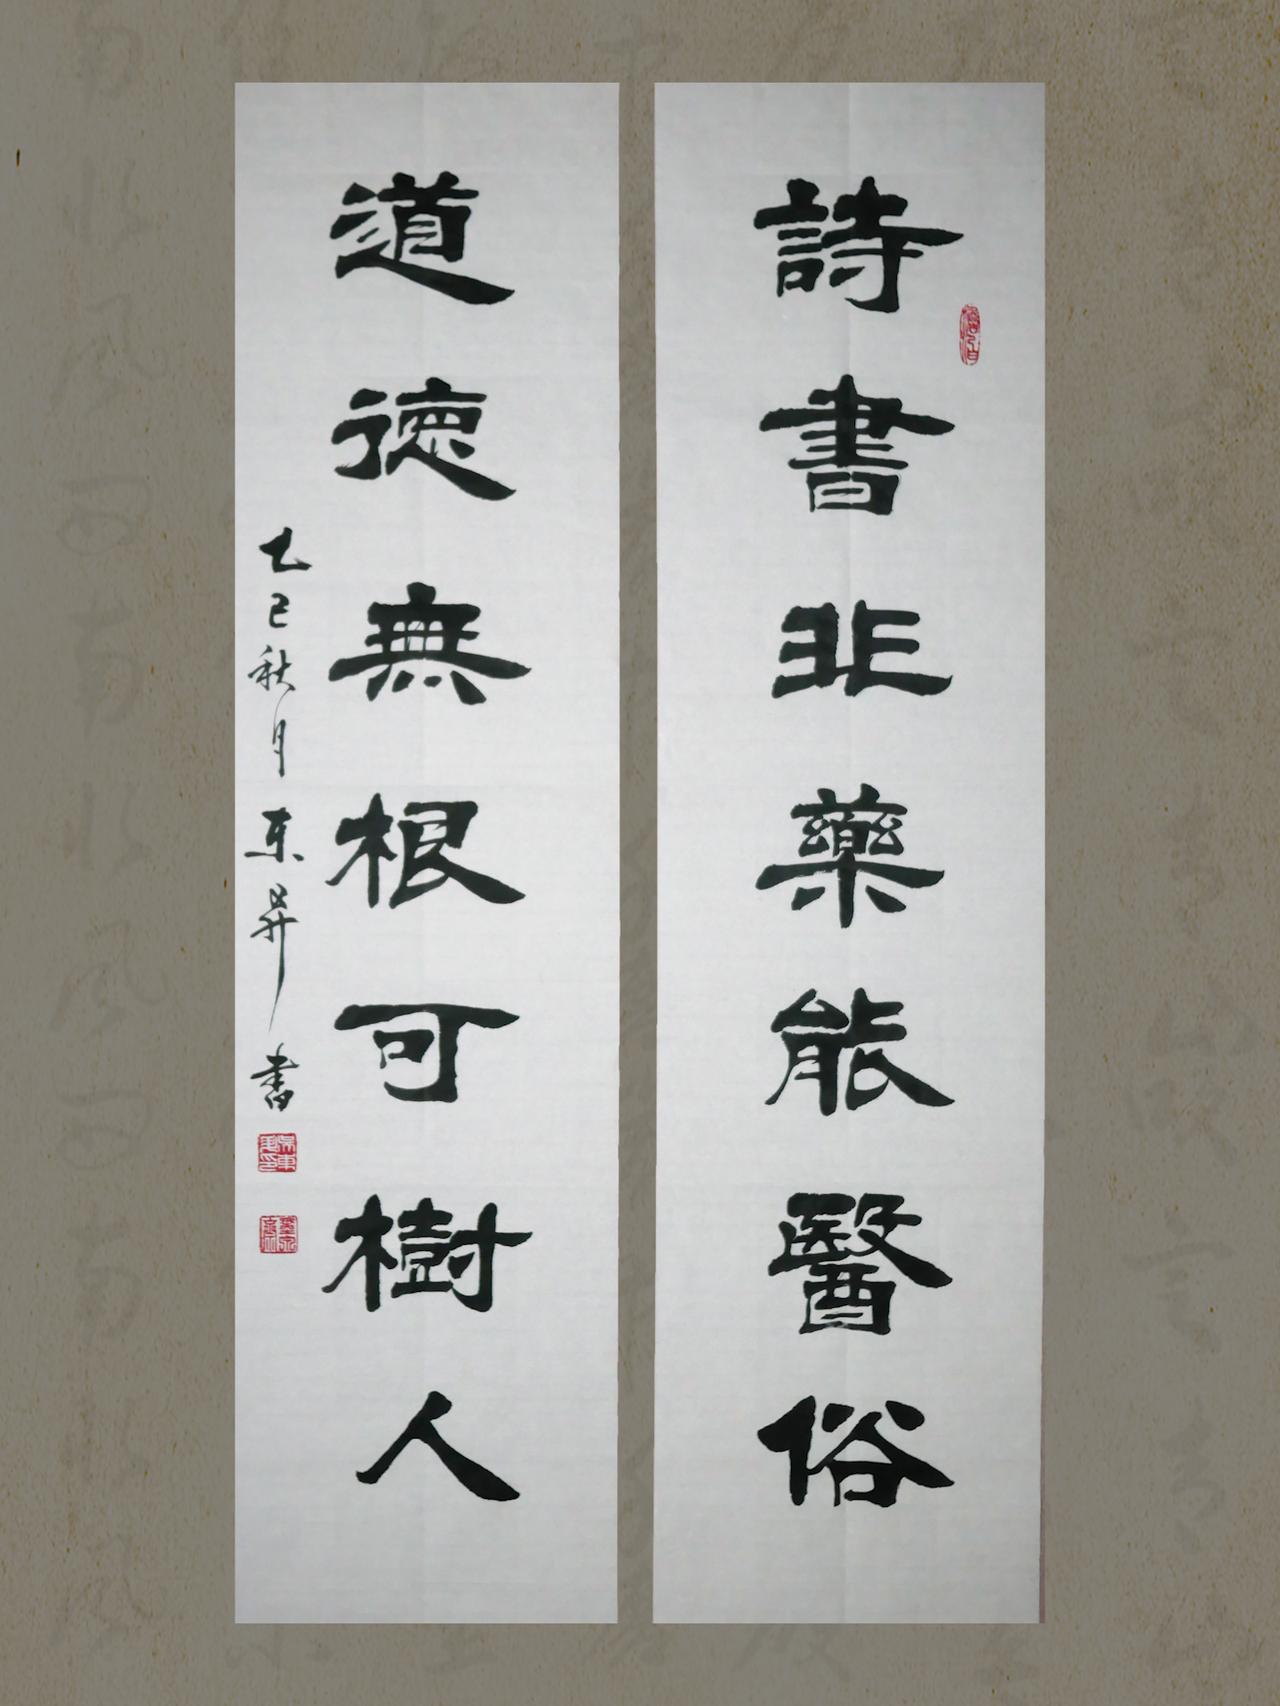 詩書非藥能醫俗
道德無根可樹人
乙巳秋月東昇書